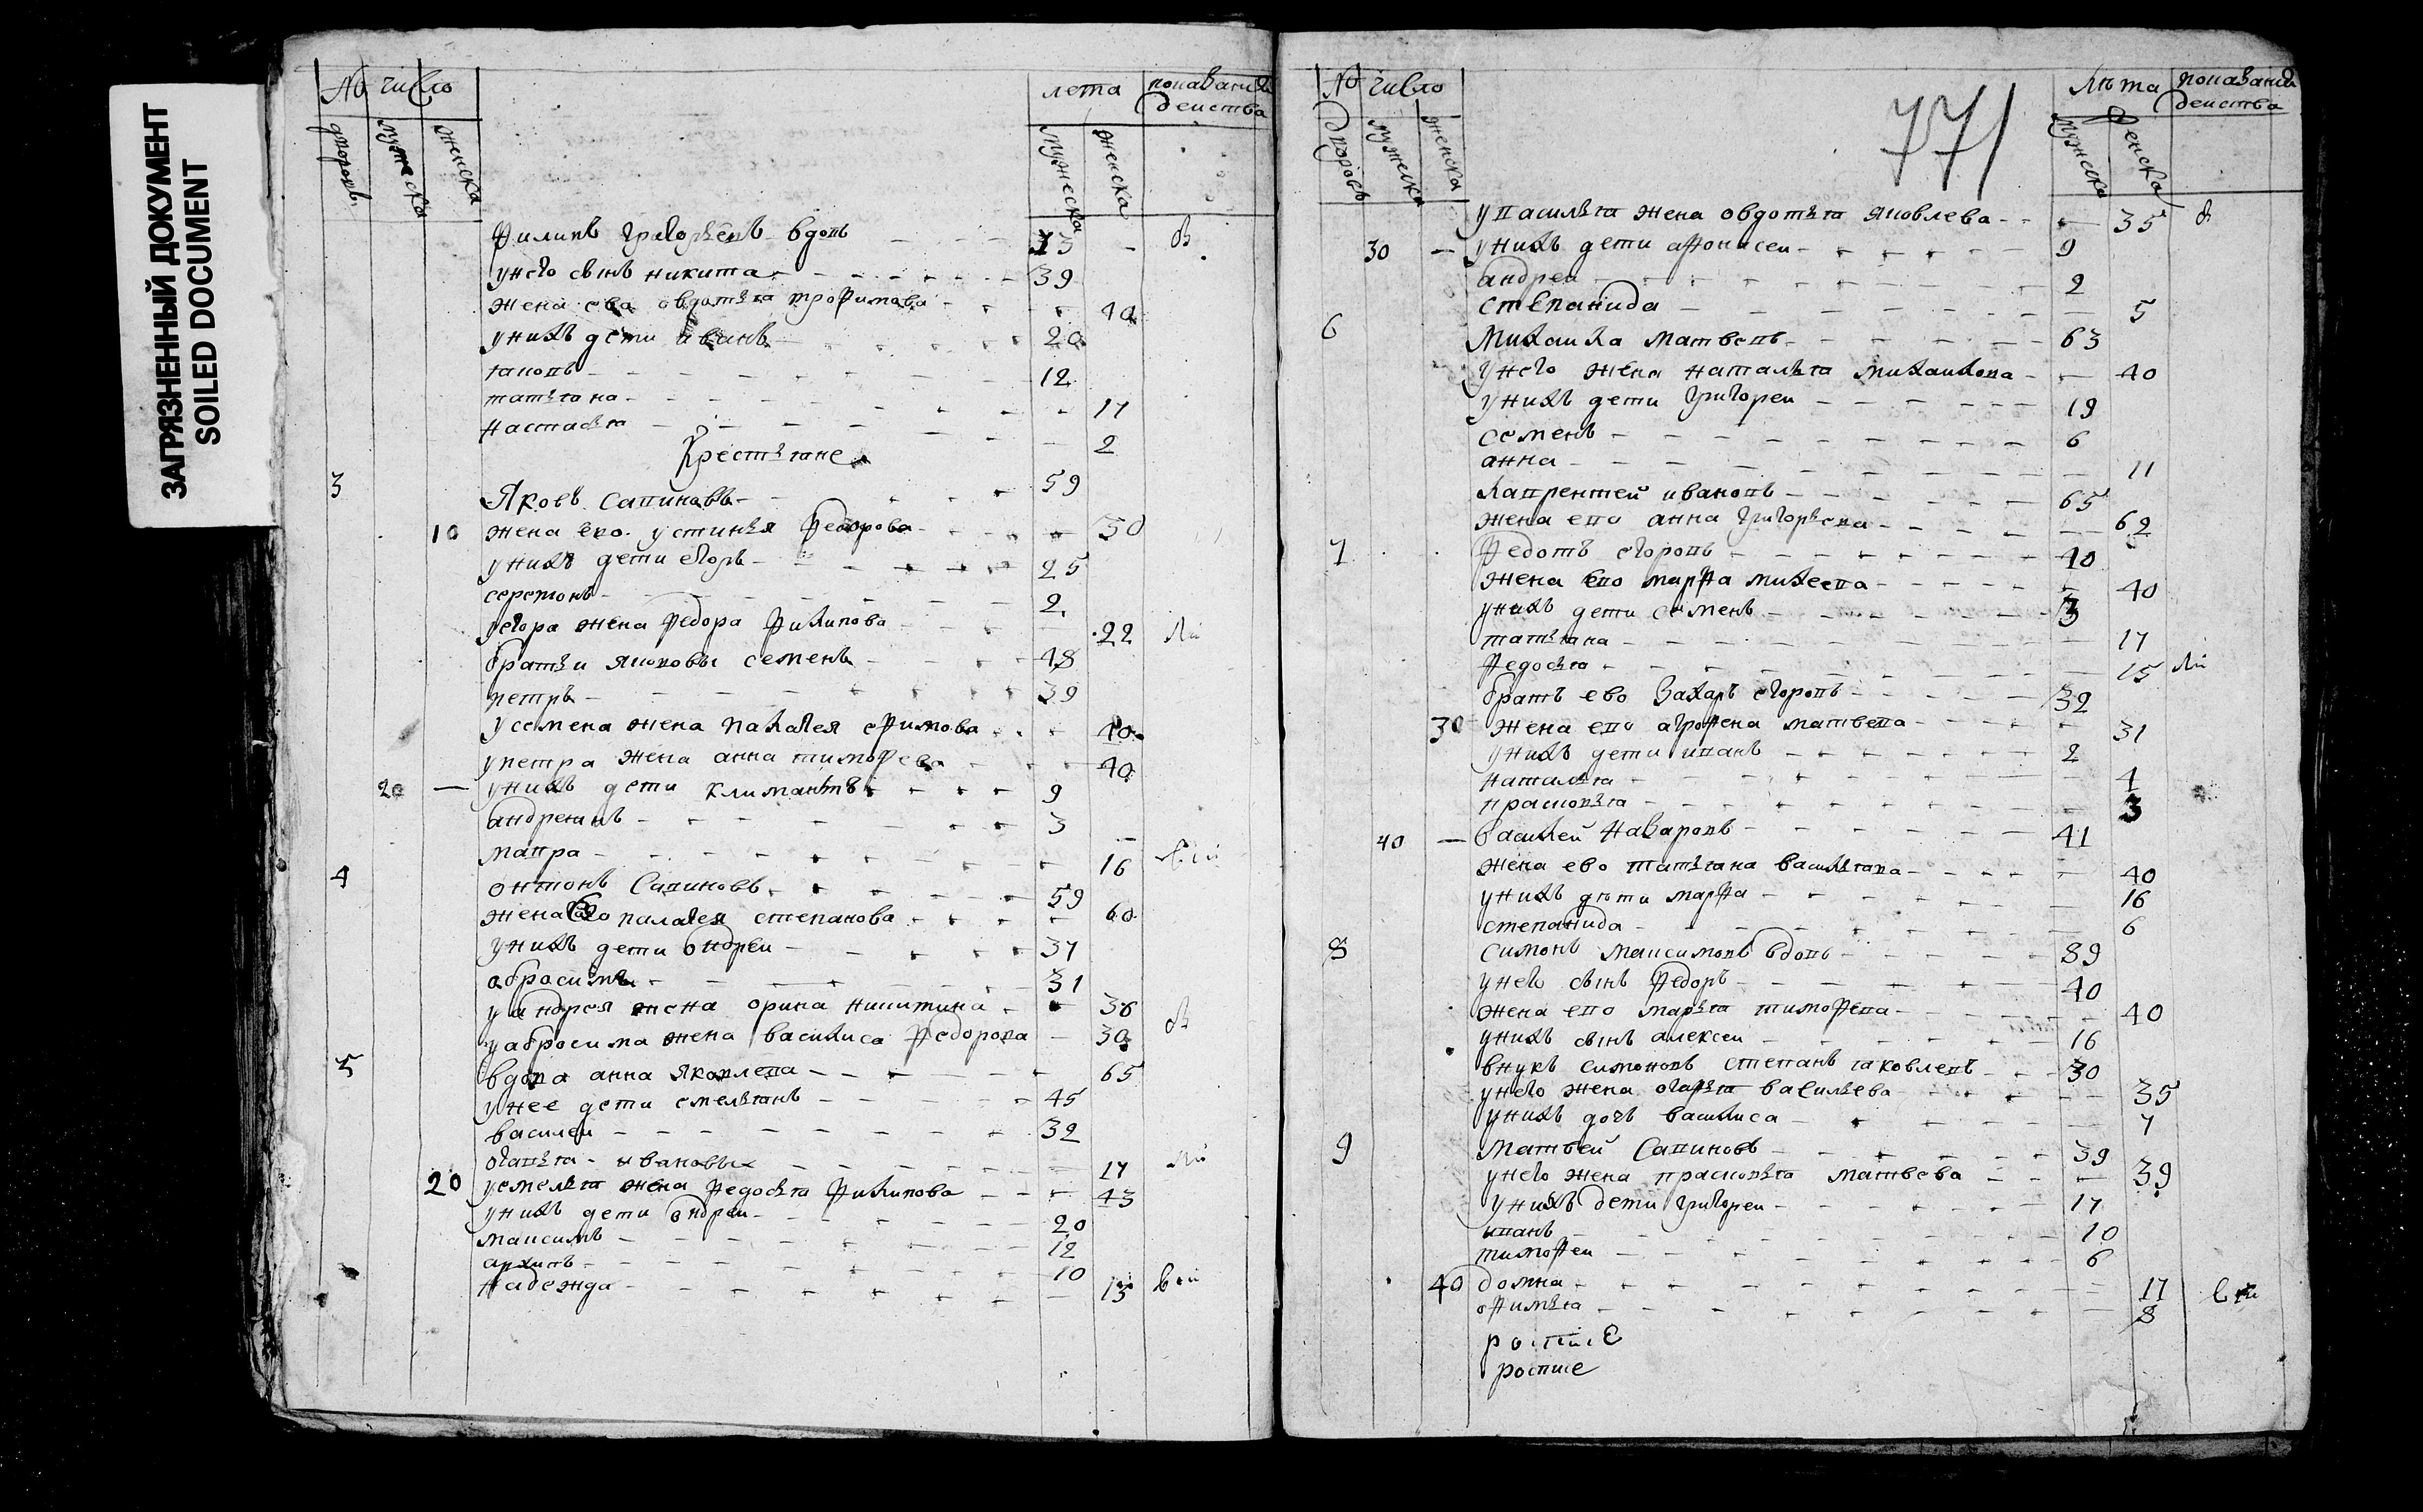 ЗАГРЯЗНЕННЫЙ ДОКУМЕНТ
SOILED DOCUMENT
№ число лета показание действа
дворовъ мужеска женска мужеска женска
Филипъ григорьевъ вдовъ 73
унево сынъ никита 39
жена ева овдотья трофимова 40
унихъ дети иванъ 20
яковъ 12
татьяна 17
настасья 2
Крестьяне
3 Яковъ савиновъ 59
10 жена ево устинья федорова 50
унихъ дети егоръ 25
2
уегора жена федора филипова 22
братьи якововы семенъ 48
петръ 39
усемена жена палагея ефимова 40
упетра жена анна тимофева 40
20 — унихъ дети климантъ 9
андреянъ 3
мавра 16
4 онтонъ Савиновъ 59
жена ево палагея степанова 60
унихъ дети ондреи 37
абросимъ 31
уандрея жена орина никитина 36
уабросима жена василиса федорова 30
5 вдова анна яковлева 65
унее дети емельянъ 45
василеи 32
огапья ивановых 17
20 уемельяна жена федосья филипова 43
унихъ дети ондреи 20
максимъ 12
архипъ 10
надежда 13
771
№ число лѣта показание действа
дворовъ мужеска женска мужеска женска
увасилья жена овдотья яковлева 35
30 — унихъ дети афонасеи 9
андреи 2
степанида 5
6 михаила матвевъ 63
унего жена наталья михаилова 40
унихъ дети григореи 19
семенъ 6
анна 11
лаврентей ивановъ 65
жена ево анна григорьева 62
7 федотъ егоровъ 40
жена ево марфа михеева 40
унихъ дети семенъ 3
татьяна 17
федосья 15
братъ ево захаръ егоровъ 32
30 жена ево агрофена матвева 31
унихъ дети иванъ 2
наталья 4
прасковья 3
40 — василей назаровъ 41
жена ево татьяна васильява 40
унихъ дѣти марфа 16
степанида 6
8 симонъ максимовъ вдовъ 89
унего сынъ федоръ 40
жена ево марья тимофева 40
унихъ сынъ алексеи 16
внукъ симоновъ степанъ яковлевъ 30
унего жена огафья васильева 35
унихъ дочь василиса 7
9 матвей Савиновъ 39
унего жена прасковья матвева 39
унихъ дети григореи 17
иванъ 10
тимофеи 6
40 домна 17
офимья 8
росписе
росписе